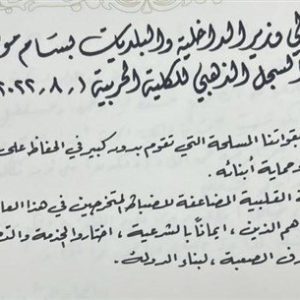 وزير الداخلية والبلديات بسام
السجل الذهبي للكلية الحربية ٢٠٢٢.٨.١
بقواتنا المسلحة التي تقوم بدور كبير في الحفاظ على
وحماية أبنائه.
القلبية المضاعفة للضباط المتخرجين في هذا
الذين، ايمانًا بالشرعية، اختاروا الخدمة
الصعبة، لبناء الدولة.